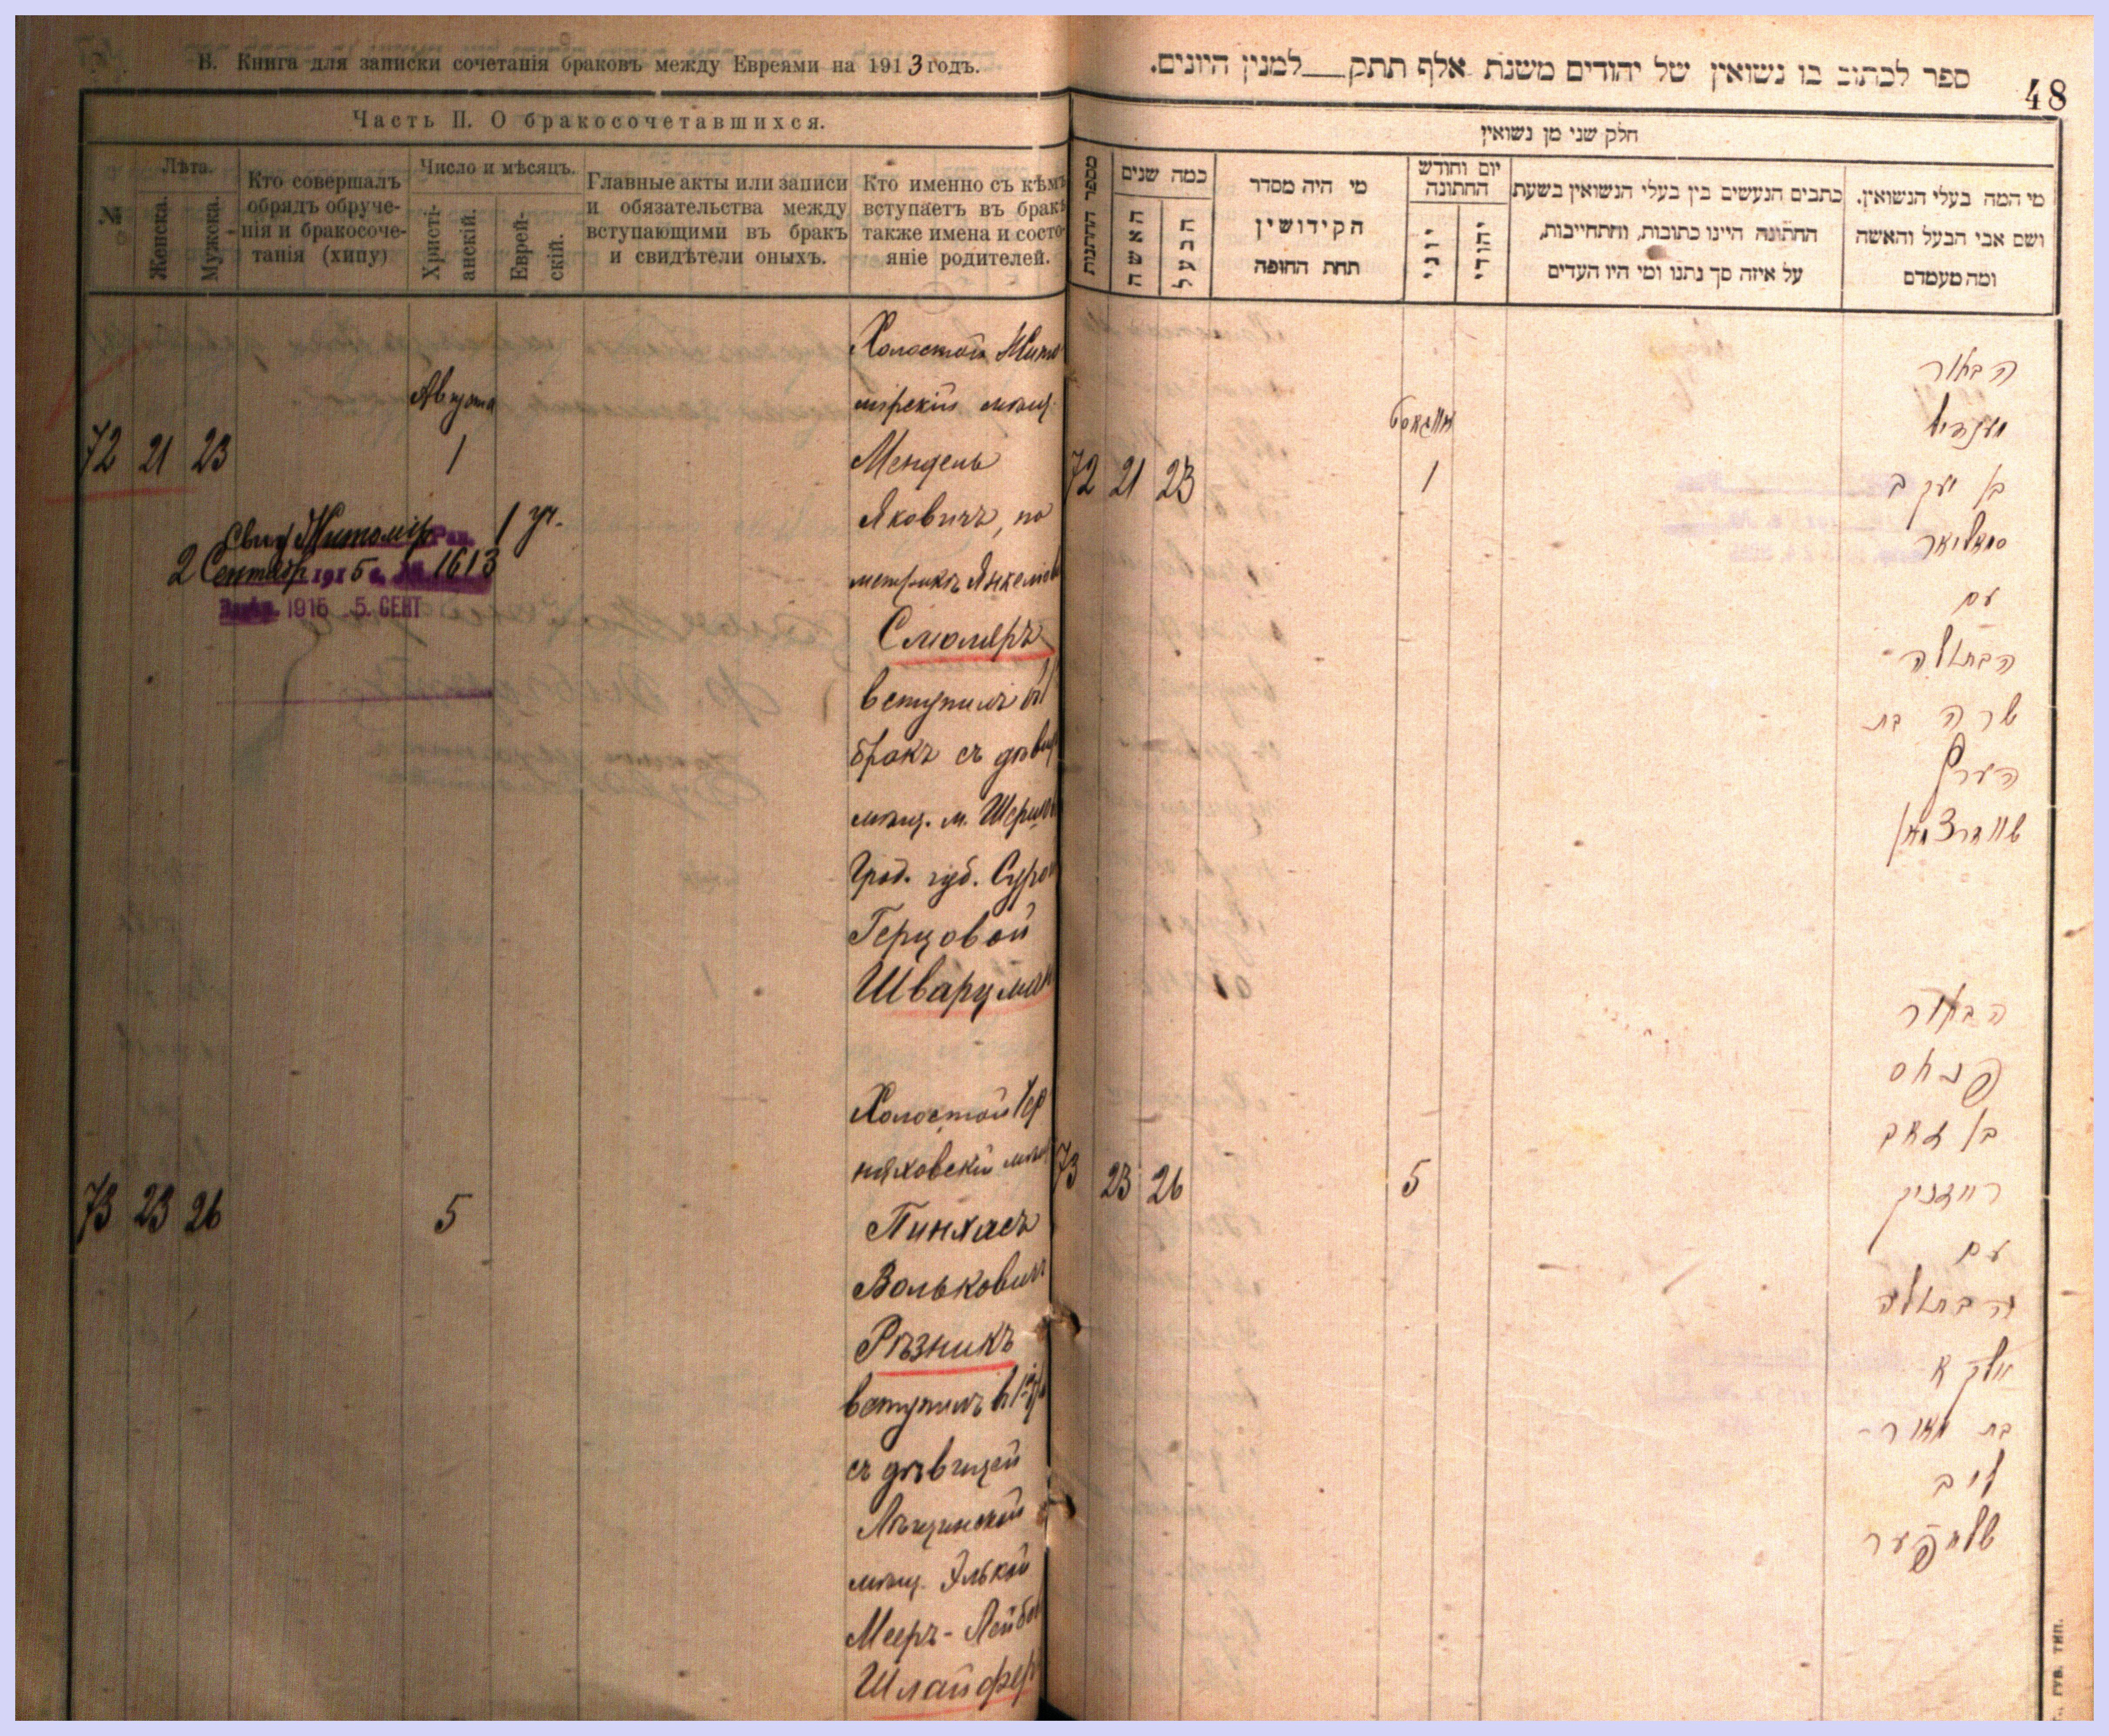 В. Книга для записки сочетанія браковъ между Евреями на 1913 годъ.
Часть II. О бракосочетавшихся.
№
Лѣта.
Женска.
Мужска.
Кто совершалъ
обрядъ обруче-
нія и бракосоче-
танія (хипу)
Число и мѣсяцъ.
Христі-
анскій.
Еврей-
скій.
Главные акты или записи
и обязательства между
вступающими въ бракъ
и свидѣтели оныхъ.
Кто именно съ кѣмъ
вступаетъ въ бракъ
также имена и состо-
яніе родителей.
72 21 23
Августа
1
Холостой Жито
мірскій мѣщ.
Мендель
Яковичъ, по
метрикѣ Янкелев
Смоляръ
вступилъ въ
бракъ съ дѣвиц
мѣщ. м.
Грод. губ.
Герцовой
Шварцман
Свид Житомір Рав.
1 уч.
2 Сентябр 1915 г. № 1613
1915 5. СЕНТ
73 23 26
5
Холостой Чер
няховскій мѣщ
Пинхасъ
Вольковичъ
Рѣзникъ
вступилъ в
съ дѣвицей
мѣщ. Элькой
Мееръ-Лейбов
Шлайфер
ספר לכתוב בו נשואין של יהודים משנת אלף תתק למנין היונים.
48
חלק שני מן נשואין
מספר החתונות
כמה שנים
האשה
הבעל
מי היה מסדר
הקידושין
תחת החופה
יום וחודש
החתונה
יוני
יהודי
כתבים הנעשים בין בעלי הנשואין בשעת
החתונה היינו כתובות, והתחייבות,
על איזה סך נתנו ומי היו העדים
מי המה בעלי הנשואין.
ושם אבי הבעל והאשה
ומה מעמדם
72 21 23
אווגוסט
1
הבחור
מענדיל
בן יעקב
סמאליאר
עם
הבתולה
שרה בת
הערץ
שווארצמאן
73 23 26
5
הבחור
פנחס
בן זאב
רעזניק
עם
הבתולה
אלקא
בת מאיר-
ליב
שלייפער
ГУБ. ТИП.